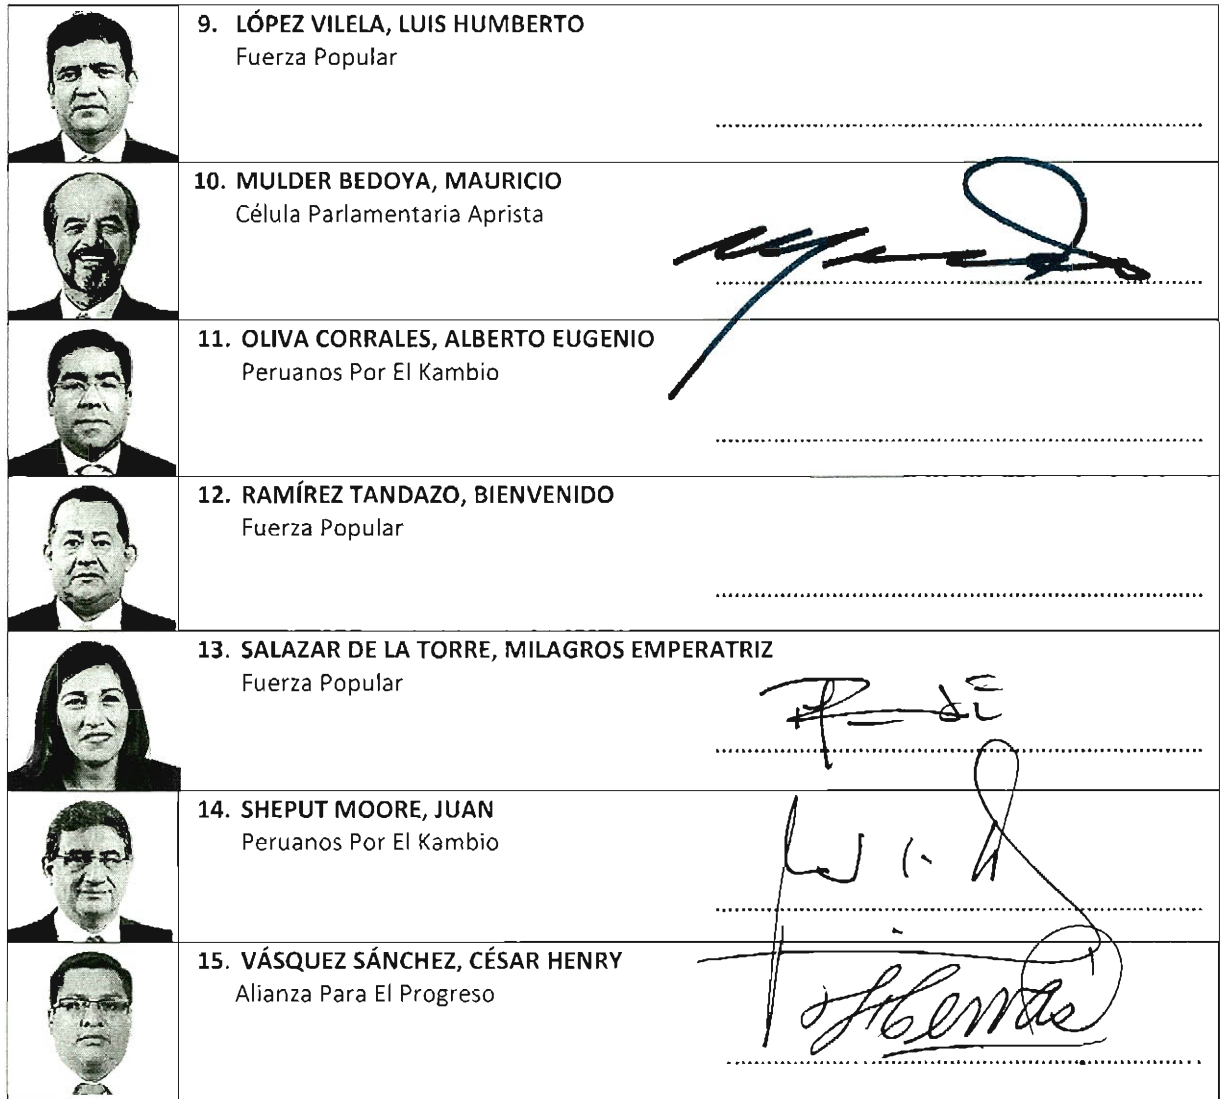 9. LÓPEZ VILELA, LUIS HUMBERTO
Fuerza Popular
10. MULDER BEDOYA, MAURICIO
Célula Parlamentaria Aprista
11. OLIVA CORRALES, ALBERTO EUGENIO
Peruanos Por El Kambio
12. RAMÍREZ TANDAZO, BIENVENIDO
Fuerza Popular
13. SALAZAR DE LA TORRE, MILAGROS EMPERATRIZ
Fuerza Popular
14. SHEPUT MOORE, JUAN
Peruanos Por El Kambio
15. VÁSQUEZ SÁNCHEZ, CÉSAR HENRY
Alianza Para El Progreso